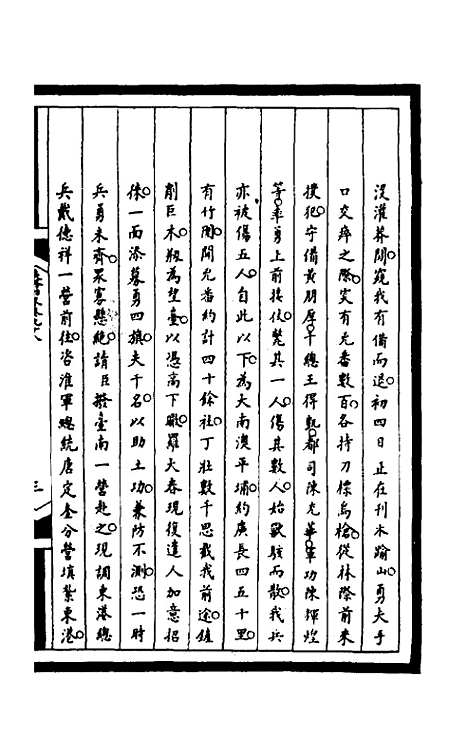 沒灌莽間窺我有備而退初四日正在刊木踰山勇夫手
口交瘁之際突有兇番數百各持刀標鳥槍從林際前來
撲犯守備黃朋厚千總王得凱都司陳光華軍功陳輝煌
等率勇上前接仗斃其一人傷其數人始獸駭而散我兵
亦被傷五人自此以下為大南澳平埔約廣長四五十里
有竹圍間兇番約計四十餘社丁壯數千思截我前途鏟
削巨木板為望臺以憑高下瞰羅大春現復遣人加意招
徠一面添募勇四旗夫千名以助土功兼防不測恐一時
兵勇未齊眾寡懸絕請臣撥臺南一營赴之現調東港總
兵戴德祥一營前往咨淮軍總統唐定奎分營填紮東港